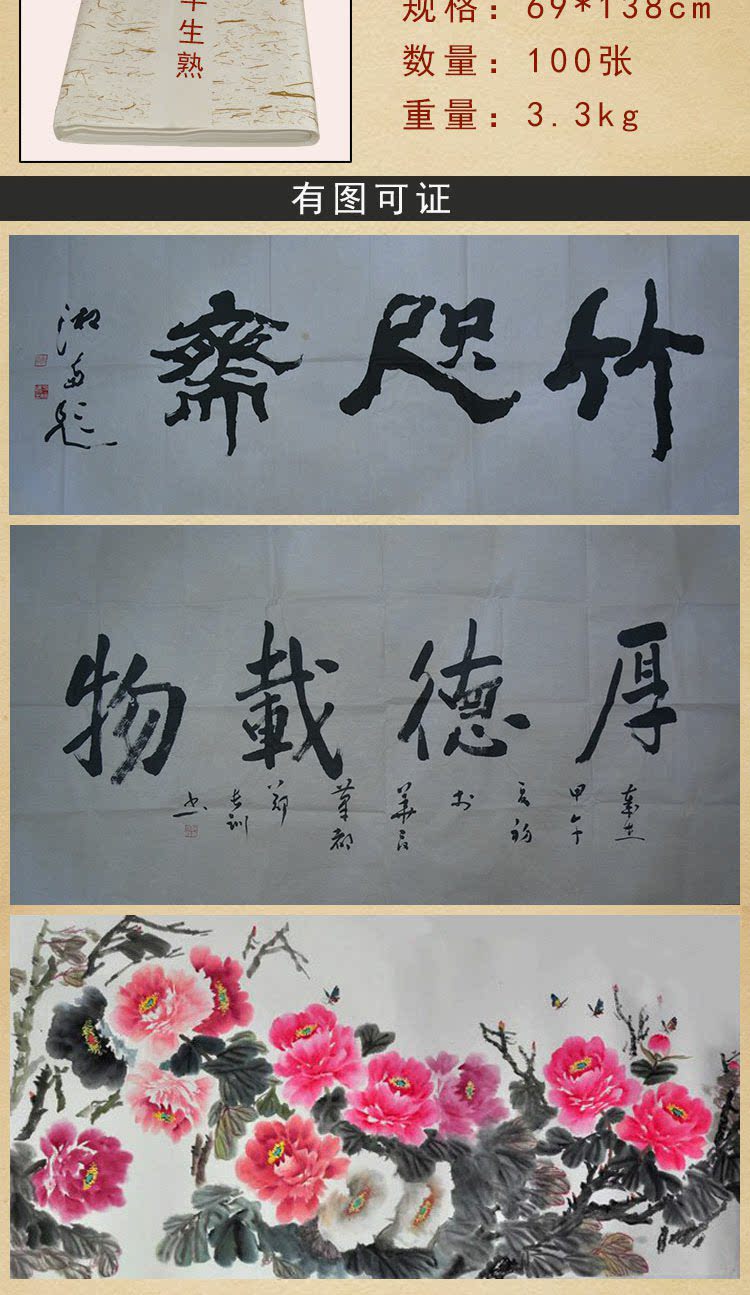 半生熟
规格：69*138cm
数量：100张
重量：3.3kg
有图可证
竹咫齋
厚德載物
甲午